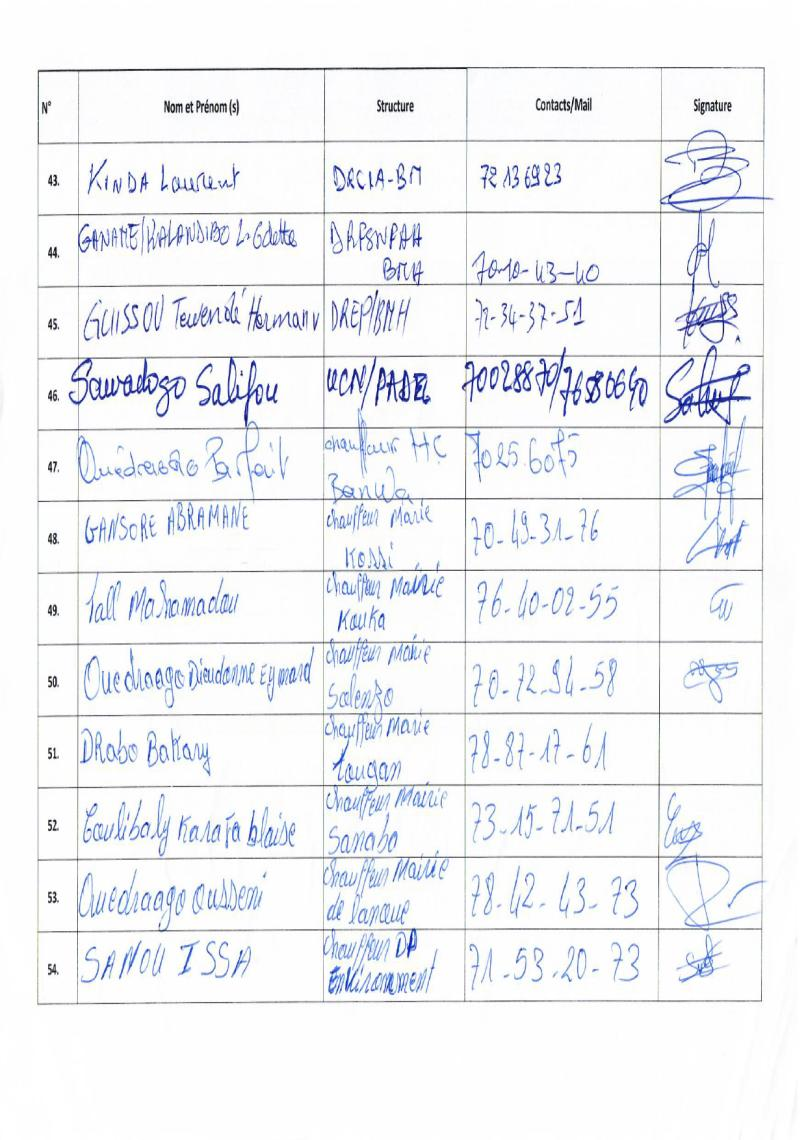 N° Nom et Prénom (s) Structure Contacts/Mail Signature
43. KINDA Laurent DRCIA-BM 72 13 69 23
44. GANAME/KALANDIBO L. Odette DRFSNPAH
BMH 70-10-43-40
45. GUISSOU Tewendé Hermann DREP/BMH 72-34-37-51
46. Sawadogo Salifou UCN/PADEL 70028870/76580640
47. Ouédraogo Parfait chauffeur HC
Banwa 7025.6075
48. GANSORE ABRAMANE chauffeur Marie
Kossi 70-49-31-76
49. Tall Mahamadou chauffeur Mairie
Kouka 76-40-02-55
50. Ouedraago Dieudonne Eymard chauffeur Mairie
Solenzo 70-72-94-58
51. DRabo Bakary chauffeur Marie
Tougan 78-87-17-61
52. Coulibaly Karafa blaise chauffeur Mairie
Sanaba 73-15-71-51
53. Ouedraago Ousseni chauffeur Mairie
de 78-42-43-73
54. SANOU ISSA chauffeur DP
Environnement 71-53-20-73